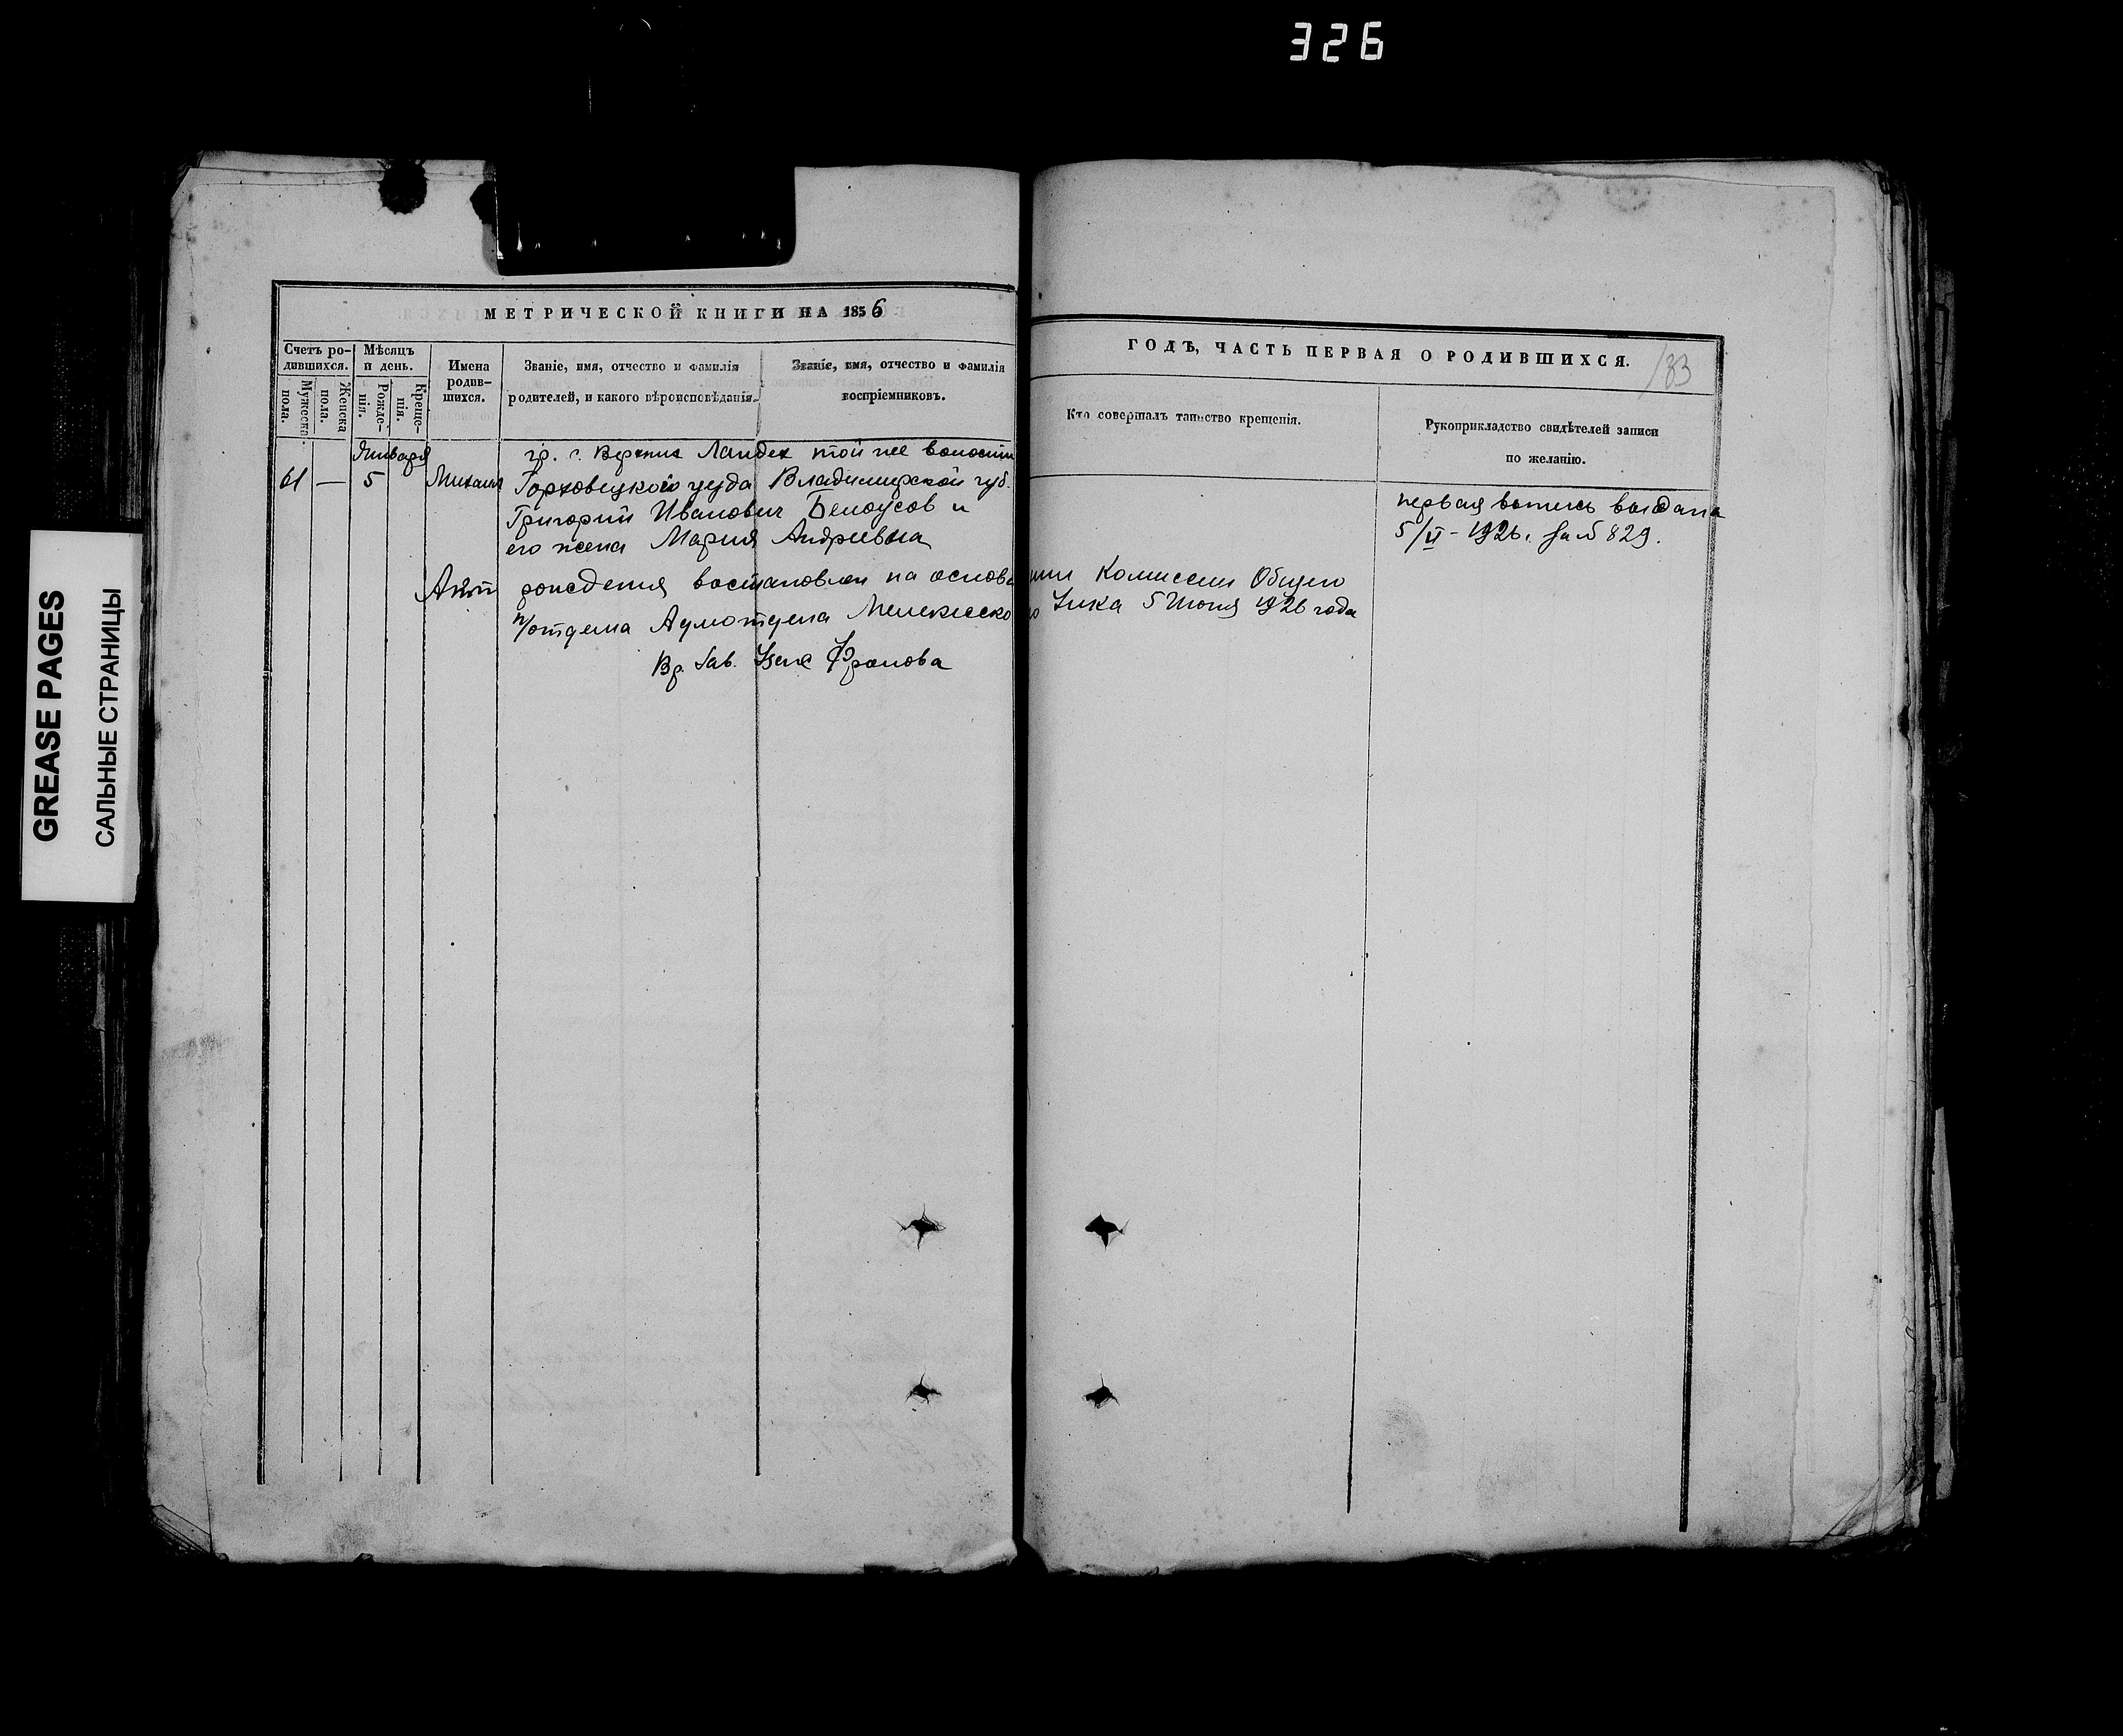 326
GREASE PAGES
САЛЬНЫЕ СТРАНИЦЫ
МЕТРИЧЕСКОЙ КНИГИ НА 1856
Счетъ ро-
дившихся.
Мужеска
пола.
Женска
пола.
Мѣсяцъ
и день.
Рожде-
нія.
Креще-
нія.
Имена
родив-
шихся.
Званіе, имя, отчество и фамилія
родителей, и какого вѣроисповѣданія.
Званіе, имя, отчество и фамилія
воспріемниковъ.
Января
гр. с. Верхние Ландех той же волости
61 — 5 Михаил Гороховецкого уезда Владимирской губ.
Григорий Иванович Белоусов и
его жена Мария Андреевна
ГОДЪ, ЧАСТЬ ПЕРВАЯ О РОДИВШИХСЯ.
183
Кто совершалъ таинство крещенія.
Рукоприкладство свидѣтелей записи
по желанію.
первая выпись выдана
5/VI - 1926 г. за № 829.
Акт рождения востановлен на основании Комиссии Общего
п/отдела Админотдела Мелекесского Уика 5 Июня 1926 года
Вр. Зав.